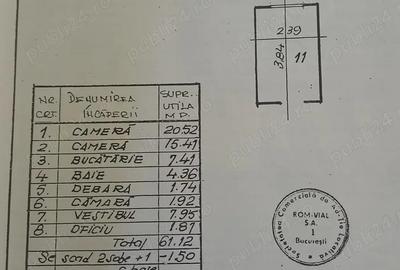 2 39
3,84
11
NR. CRT. DENUMIREA ÎNCĂPERII SUPR. UTILĂ M.P.
1. CAMERĂ 20.52
2. CAMERĂ 15.41
3. BUCĂTĂRIE 7.41
4. BAIE 4.36
5. DEBARA 1.74
6. CĂMARĂ 1.92
7. VESTIBUL 7.95
8. OFICIU 1.81
Total 61.12
Se scad 2 sobe + 1 -1.50
ROM-VIAL
S.A.
1
București